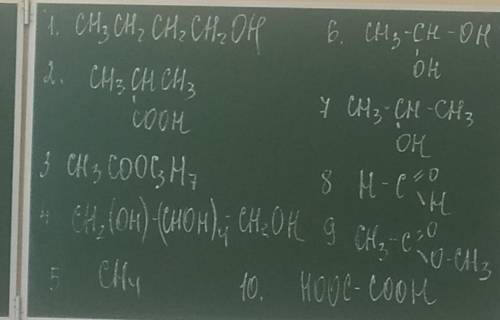 1. CH3CH2CH2CH2OH
2. CH3CHCH3
COOH
3 CH3COOC3H7
4 CH2(OH)-(CHOH)4-CH2OH
5 CH4
6. CH3-CH-OH
OH
7 CH3-CH-CH3
OH
8 H-C=O
H
9 CH3-C=O
O-CH3
10. HOOC-COOH